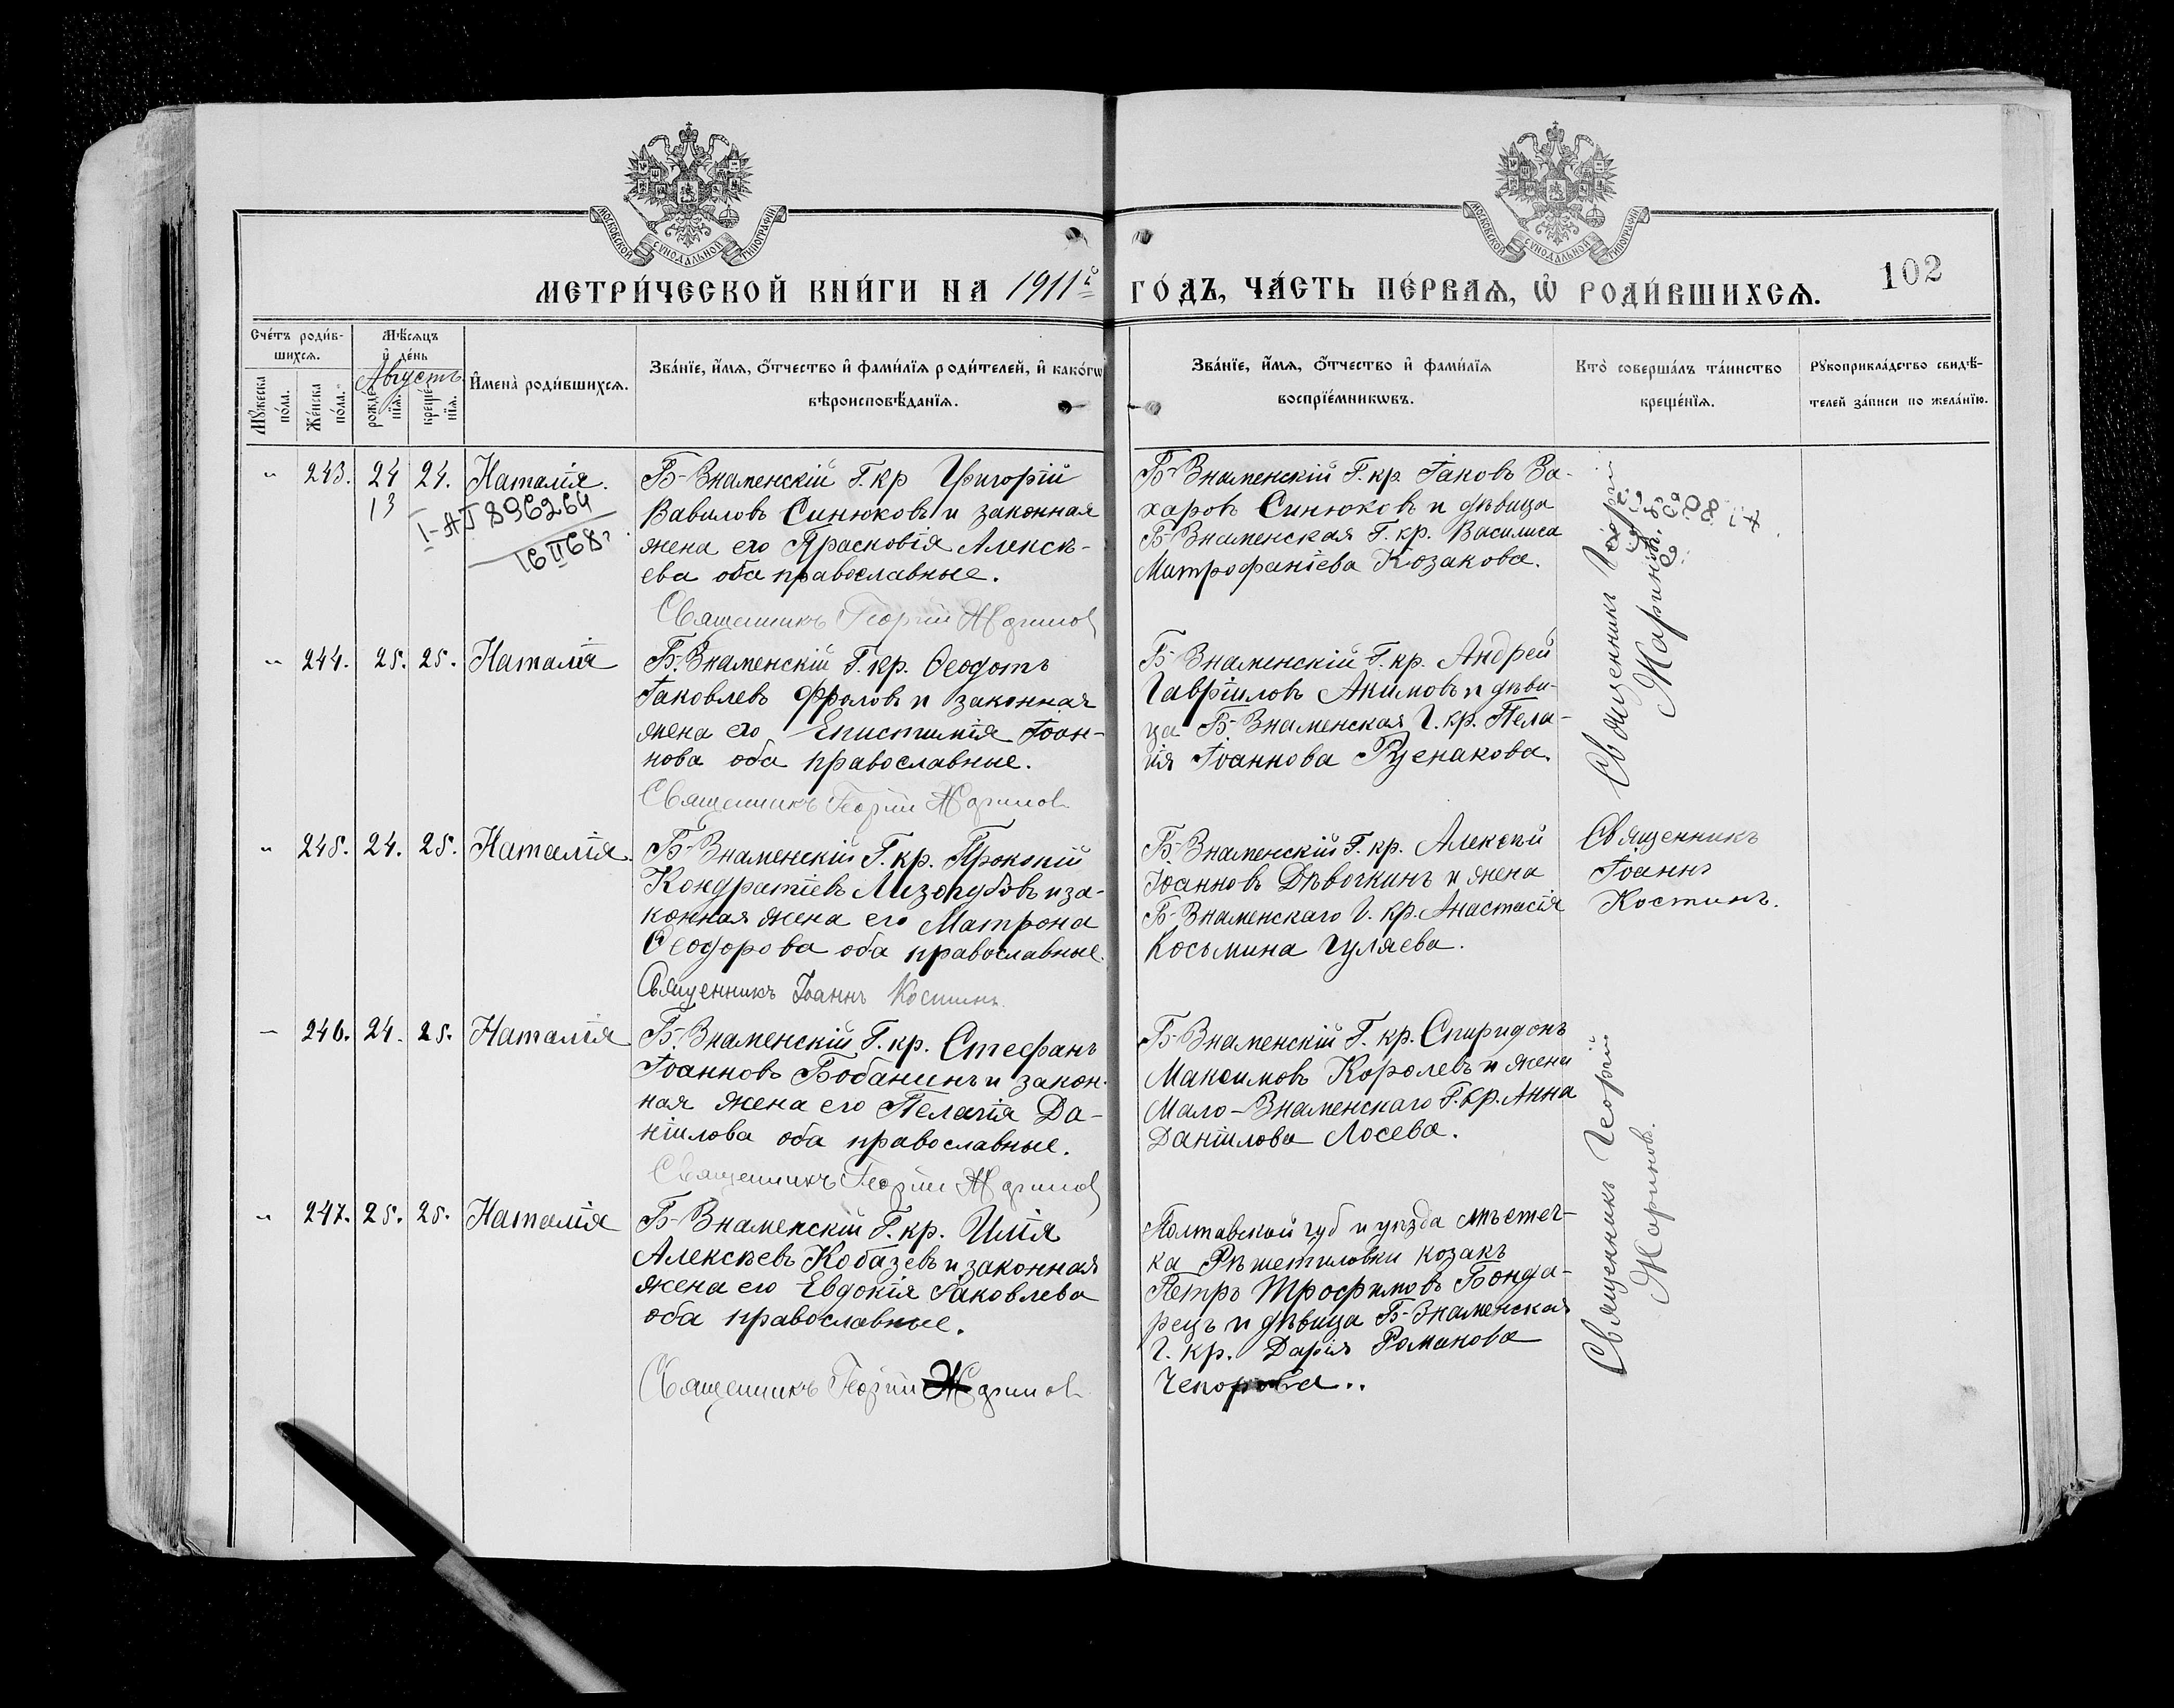 МОСКОВСКОЙ СѴНОДАЛЬНОЙ ТИПОГРАФІИ
МОСКОВСКОЙ СѴНОДАЛЬНОЙ ТИПОГРАФІИ
МЕТРИ́ЧЕСКОЙ КНИ́ГИ НА 1911й ГО́ДЪ, ЧА́СТЬ ПЕ́РВАѦ, Ѡ҆ РОДИ́ВШИХСѦ.
102
Сче́тъ роди́в-
шихсѧ.
Мꙋ́жеска по́ла.
Же́нска по́ла.
Мѣ́сѧцъ
и҆ де́нь
Августъ
рожде́-
нїѧ.
креще́-
нїѧ.
И҆мена̀ роди́вшихсѧ.
Зва́нїе, и҆́мѧ, ѻ҆́тчество и҆ фами́лїѧ роди́телей, и҆ како́гѡ
вѣроисповѣ́данїѧ.
Зва́нїе, и҆́мѧ, ѻ҆́тчество и҆ фами́лїѧ
воспрїе́мникѡвъ.
Кто̀ соверша́лъ та́инство
креще́нїѧ.
Рꙋкоприкла́дство свидѣ́-
телей за́писи по жела́нїю.
" 243. 24 24. Наталія.
13
I-АП 896264
16 II 68г.
Б-Знаменскій Г. кр Григорій
Вавиловъ Синюковъ и законная
жена его Прасковія Алексѣ-
ева оба православные.
Священникъ Георгій Жаринов
Б-Знаменскій Г. кр. Іаковъ За-
харовъ Синюковъ и дѣвица
Б-Знаменская Г. кр. Василиса
Митрофаніева Козакова.
Священникъ Георгій
Жариновъ.
" 244. 25. 25. Наталія
Б.-Знаменскій Г. кр. Ѳеодотъ
Іаковлевъ Фроловъ и законная
жена его Епистимія Іоан-
нова оба православные.
Священникъ Георгій Жаринов
Б-Знаменскій Г. кр. Андрей
Гавріиловъ Акимовъ и дѣви-
ца Б-Знаменская Г. кр. Пела-
гія Іоаннова
" 245. 24. 25. Наталія.
Б-Знаменскій Г. кр. Прокопій
Кондратіевъ Лизогубовъ и за-
конная жена его Матрона
Ѳеодорова оба православные.
Священникъ Іоаннъ Костинъ.
Б-Знаменскій Г. кр. Алексѣй
Іоанновъ Дѣвочкинъ и жена
Б-Знаменскаго Г. кр. Анастасія
Косьмина Гуляева.
Священникъ
Іоаннъ
Костинъ.
— 246. 24. 25. Наталія
Б.-Знаменскій Г. кр. Стефанъ
Іоанновъ Бобанинъ и закон-
ная жена его Пелагія Да-
ніилова оба православные.
Священникъ Георгій Жаринов
Б-Знаменскій Г. кр. Спиридонъ
Максимовъ Королевъ и жена
Мало-Знаменскаго Г. кр. Анна
Даніилова Лосева.
Священникъ Георгій
Жариновъ.
" 247. 25. 25. Наталія
Б-Знаменскій Г. кр. Илія
Алексѣевъ Кобазевъ и законная
жена его Евдокія Іаковлева
оба православные.
Священникъ Георгій Жаринов
Полтавской губ и уѣзда мѣстеч-
ка Рѣшетиловки козакъ
Петръ Трофимовъ Бонда-
рецъ и дѣвица Б-Знаменская
Г. кр. Дарія Романова